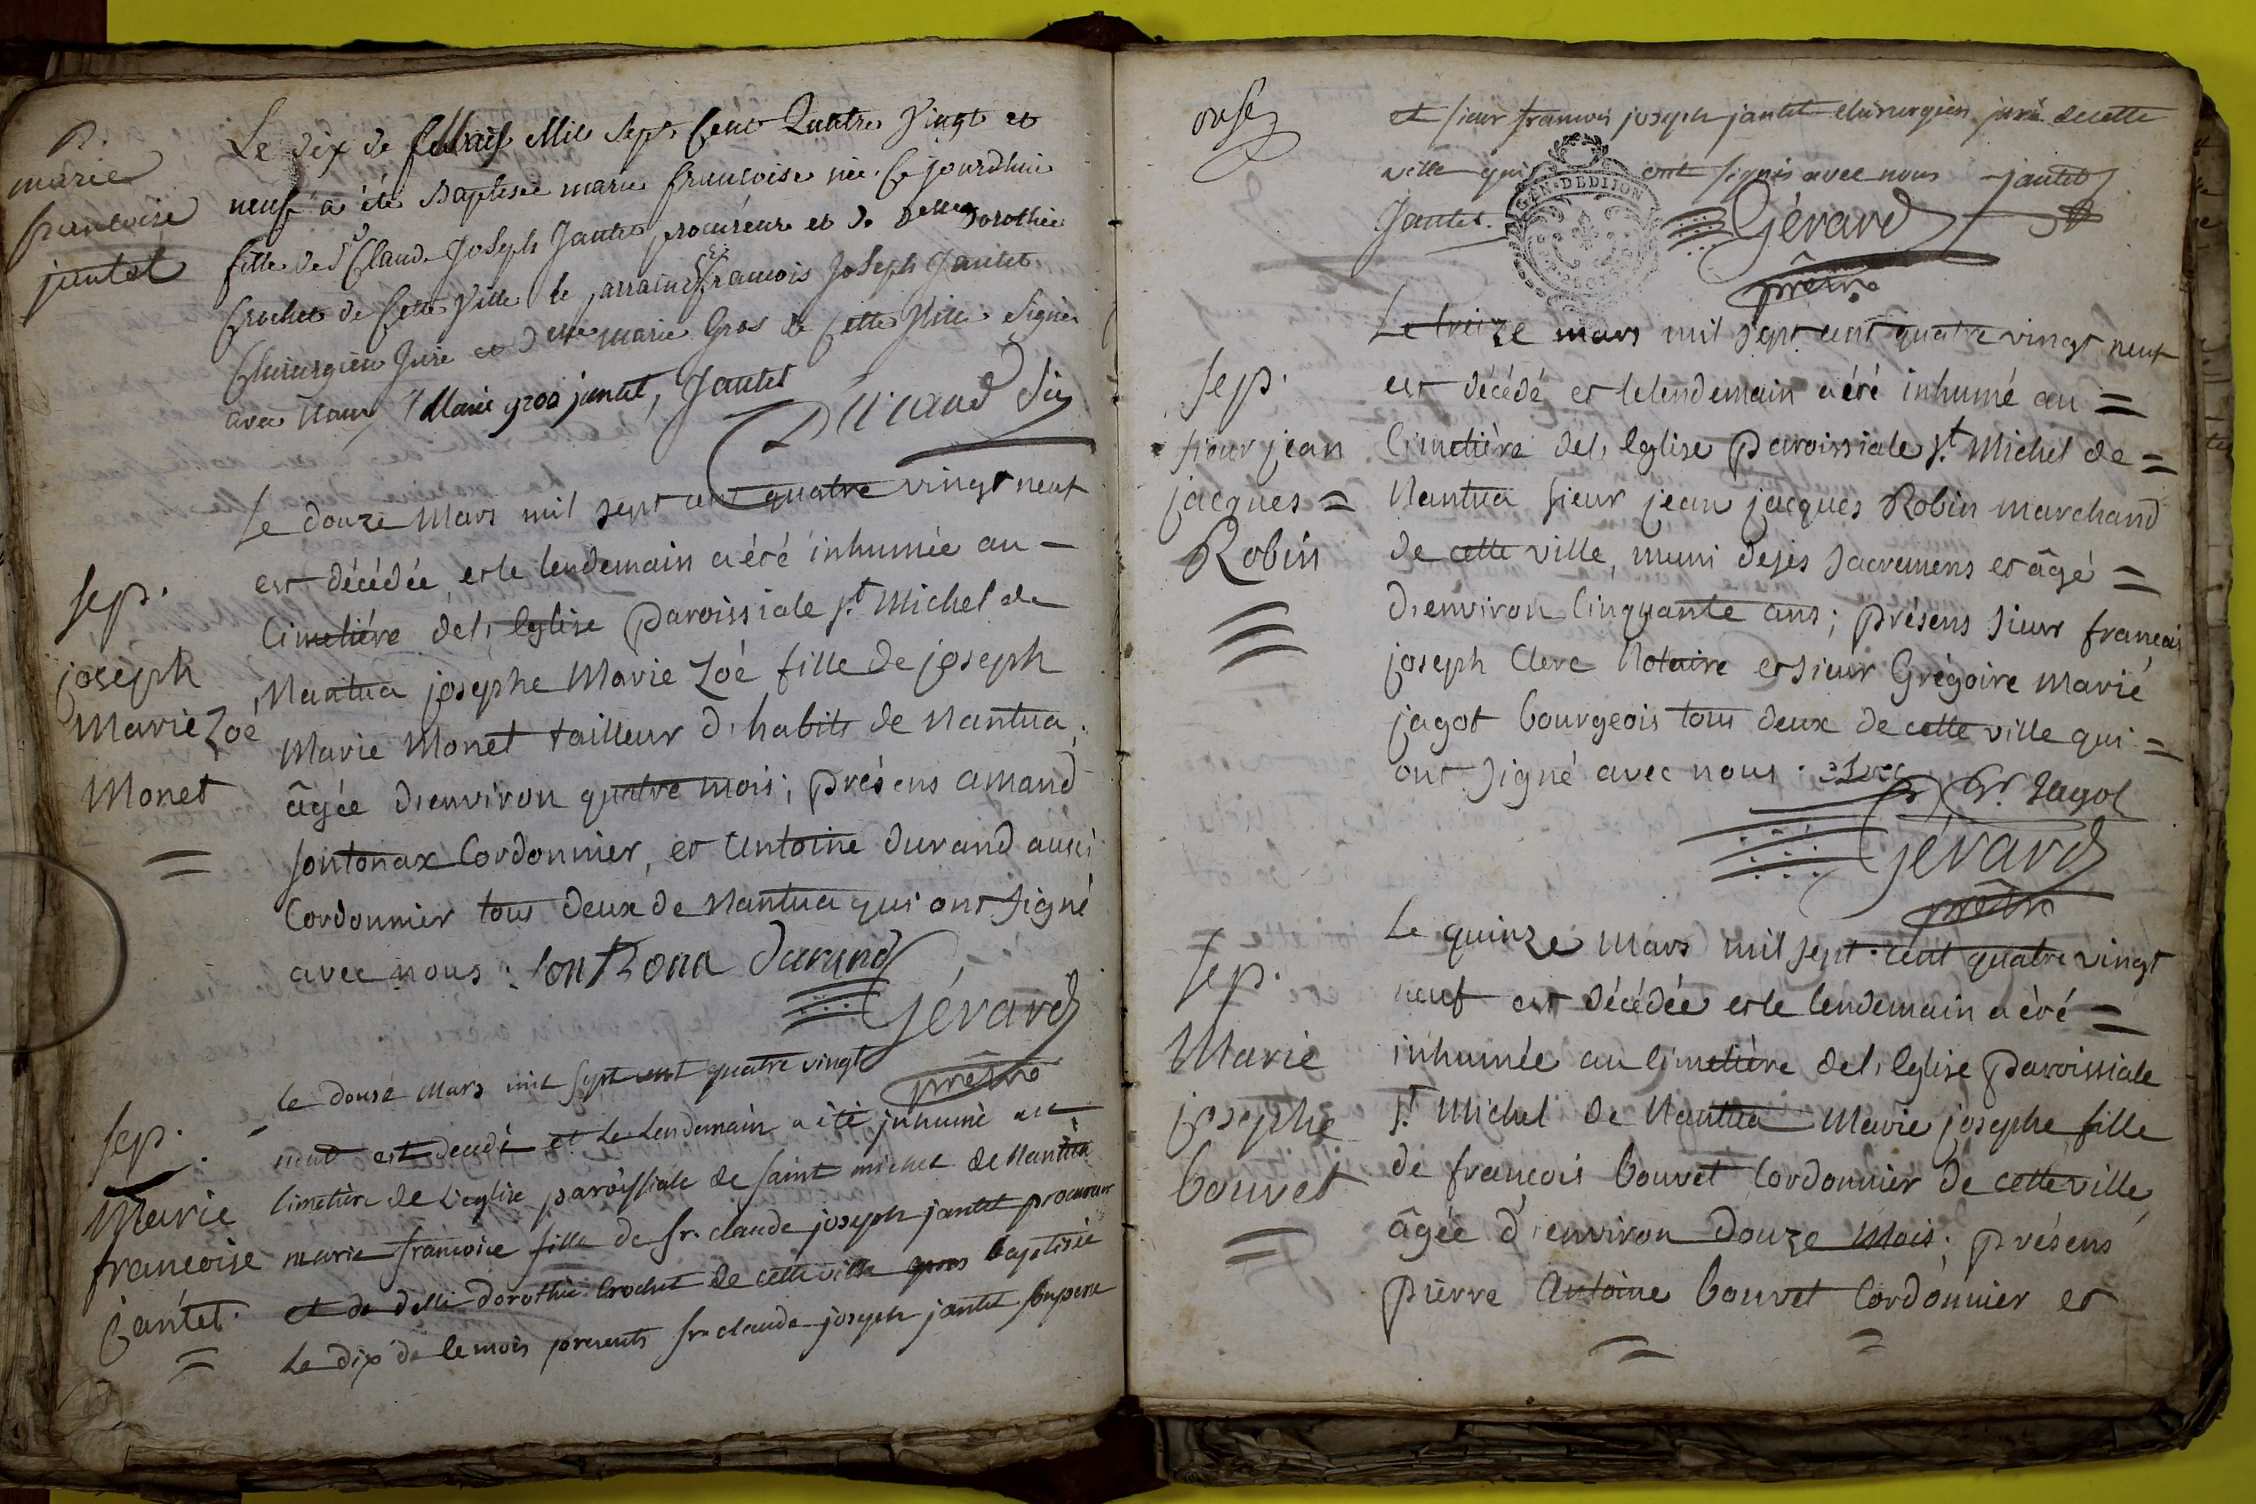 B.
marie
francoise
jantet
Le dix de Mil Sept Cent Quatre Vingt et
neuf a été Baptisée marie francoise née Ce jourdhui
fille de Sr Claude Joseph Jantet procureur et de delle Dorothée
Crochet de Cette Ville le parrain Sr francois Joseph Jantet
Chirurgien Juré et delle marie Gros de Cette Ville Signés
avec Nous Marie gros jantet, Jantet
sep.
joseph
Marie Zoé
Monet
Le douze Mars mil sept cent quatre vingt neuf
est décédée et le lendemain a été inhumée au
Cimetiére del'Eglise Paroissiale St Michel de
Nantua josephe Marie Zoé fille de joseph
Marie Monet tailleur d'habits de Nantua,
âgée d'environ quatre mois; présens amand
sontonax Cordonnier, et Antoine durand aussi
Cordonnier tous deux de Nantua qui ont signé
avec nous: durand
Gérard
prêtre
sep.
Marie
francoise
jantet.
le douse mars mil sept cent quatre vingt
neuf est decedé et le lendemain a été jnhumé au
cimetière de l'eglise paroissiale de saint michel de Nantua
marie francoise fille de sr. claude joseph jantet procureur
et de delle dorothée Crochet de cette ville baptisée
le dix de ce mois presents sr claude joseph jantet son pere
onse
et sieur francois joseph jantet chirurgien juré de cette
ville qui ont signés avec nous jantet
Jantet.
GEN. DE DIJON
Gérard
prêtre
sep.
sieur jean
jacques =
Robin
Le treize mars mil sept cent quatre vingt neuf
est décédé et le lendemain a été inhumé au =
Cimetière del'Eglise Paroissiale St. Michel de =
Nantua sieur jean jacques Robin marchand
de cette ville, muni de ses sacremens et âgé =
d'environ Cinquante ans; présens sieur francois
joseph Clerc Notaire et sieur Grégoire Marie
jagot bourgeois tous deux de cette ville qui =
ont signé avec nous. Clerc
Gr. Jagot
Gérard
prêtre
sep.
Marie
josephe
bouvet
Le quinze Mars mil sept cent quatre vingt
neuf est décédée et le lendemain a été =
inhumée au Cimetière del'Eglise Paroissiale
St. Michel de Nantua Marie josephe fille
de francois bouvet Cordonnier de cette ville,
âgée d'environ douze Mois; présens
Pierre Antoine bouvet Cordonnier et